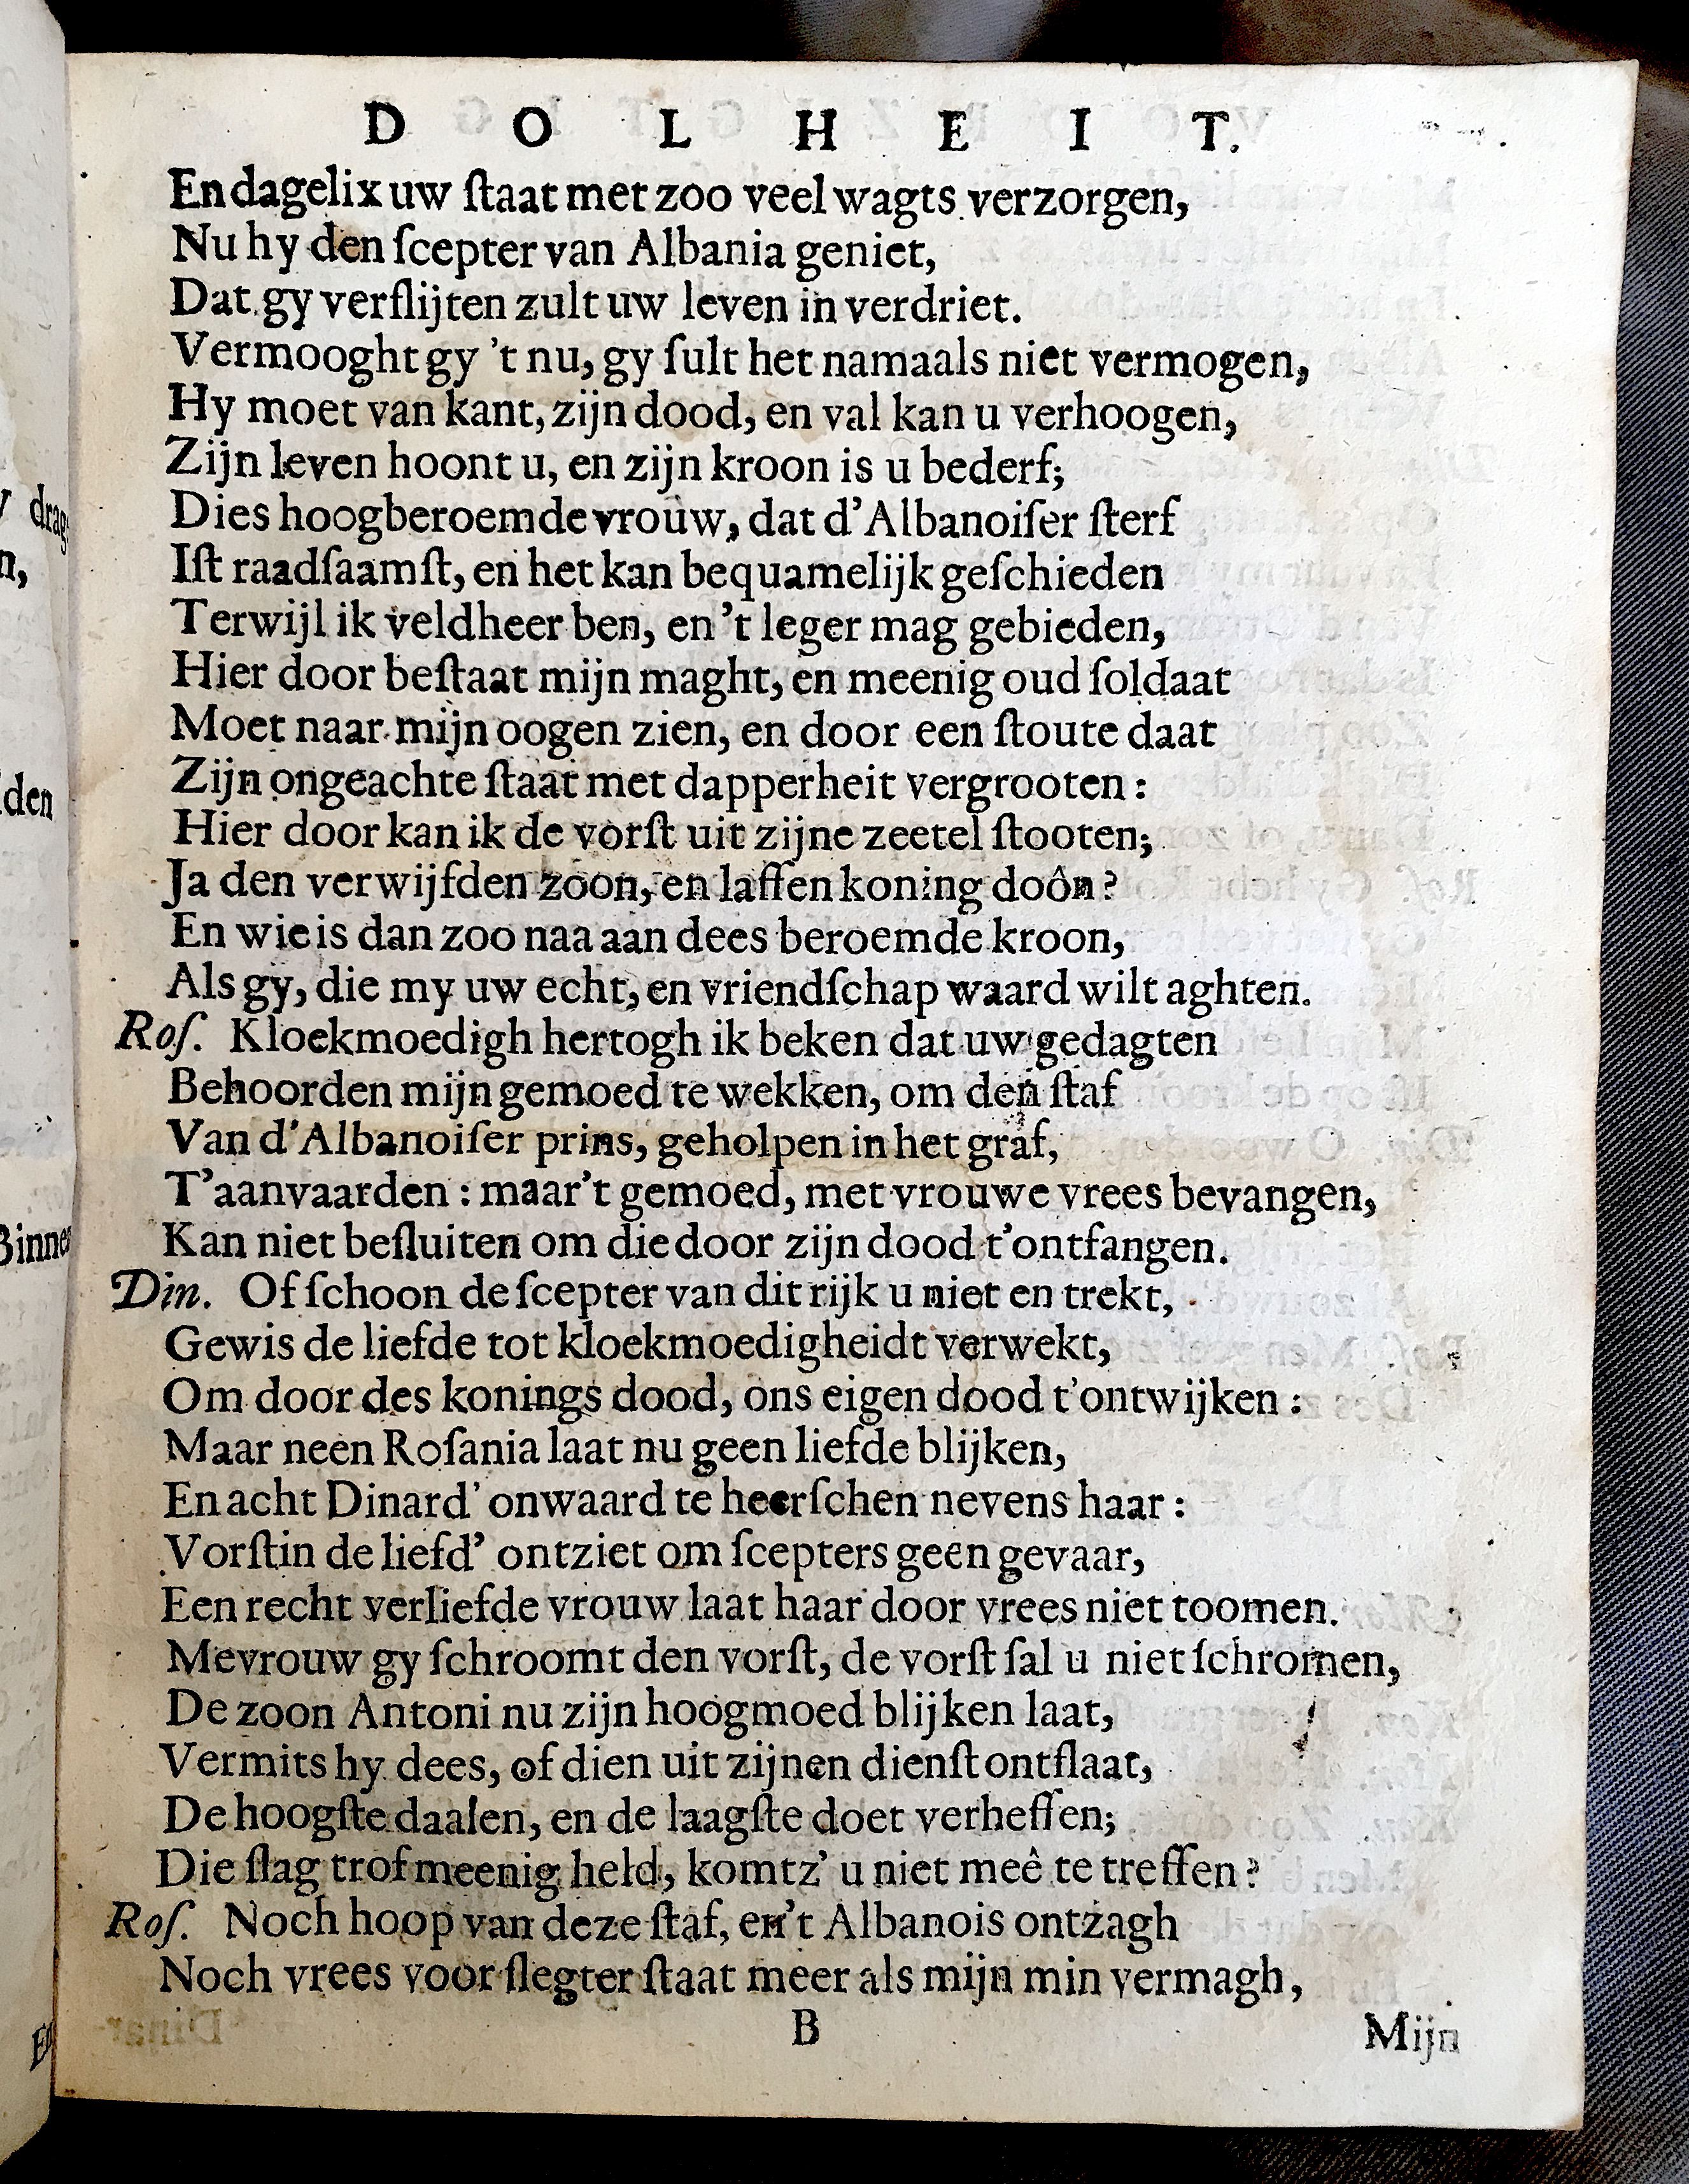 D O L H E I T.
En dagelix uw ſtaat met zoo veel wagts verzorgen,
Nu hy den ſcepter van Albania geniet,
Dat gy verſlijten zult uw leven in verdriet.
Vermooght gy 't nu, gy ſult het namaals niet vermogen,
Hy moet van kant, zijn dood, en val kan u verhoogen,
Zijn leven hoont u, en zijn kroon is u bederf;
Dies hoogberoemde vrouw, dat d'Albanoiſer ſterf
Iſt raadſaamſt, en het kan bequamelijk geſchieden
Terwijl ik veldheer ben, en 't leger mag gebieden,
Hier door beſtaat mijn maght, en meenig oud ſoldaat
Moet naar mijn oogen zien, en door een ſtoute daat
Zijn ongeachte ſtaat met dapperheit vergrooten:
Hier door kan ik de vorſt uit zijne zeetel ſtooten;
Ja den verwijfden zoon, en laffen koning doôn?
En wie is dan zoo naa aan dees beroemde kroon,
Als gy, die my uw echt, en vriendſchap waard wilt aghten.
Roſ. Kloekmoedigh hertogh ik beken dat uw gedagten
Behoorden mijn gemoed te wekken, om den ſtaf
Van d'Albanoiſer prins, geholpen in het graf,
T'aanvaarden: maar't gemoed, met vrouwe vrees bevangen,
Kan niet beſluiten om die door zijn dood t'ontfangen.
Din. Of ſchoon de ſcepter van dit rijk u niet en trekt,
Gewis de liefde tot kloekmoedigheidt verwekt,
Om door des konings dood, ons eigen dood t'ontwijken:
Maar neen Roſania laat nu geen liefde blijken,
En acht Dinard' onwaard te heerſchen nevens haar:
Vorſtin de liefd' ontziet om ſcepters geen gevaar,
Een recht verliefde vrouw laat haar door vrees niet toomen.
Mevrouw gy ſchroomt den vorſt, de vorſt ſal u niet ſchromen,
De zoon Antoni nu zijn hoogmoed blijken laat,
Vermits hy dees, of dien uit zijnen dienſt ontſlaat,
De hoogſte daalen, en de laagſte doet verheffen;
Die ſlag trof meenig held, komtz' u niet meê te treffen?
Roſ. Noch hoop van deze ſtaf, en't Albanois ontzagh
Noch vrees voor ſlegter ſtaat meer als mijn min vermagh,
B
Mijn